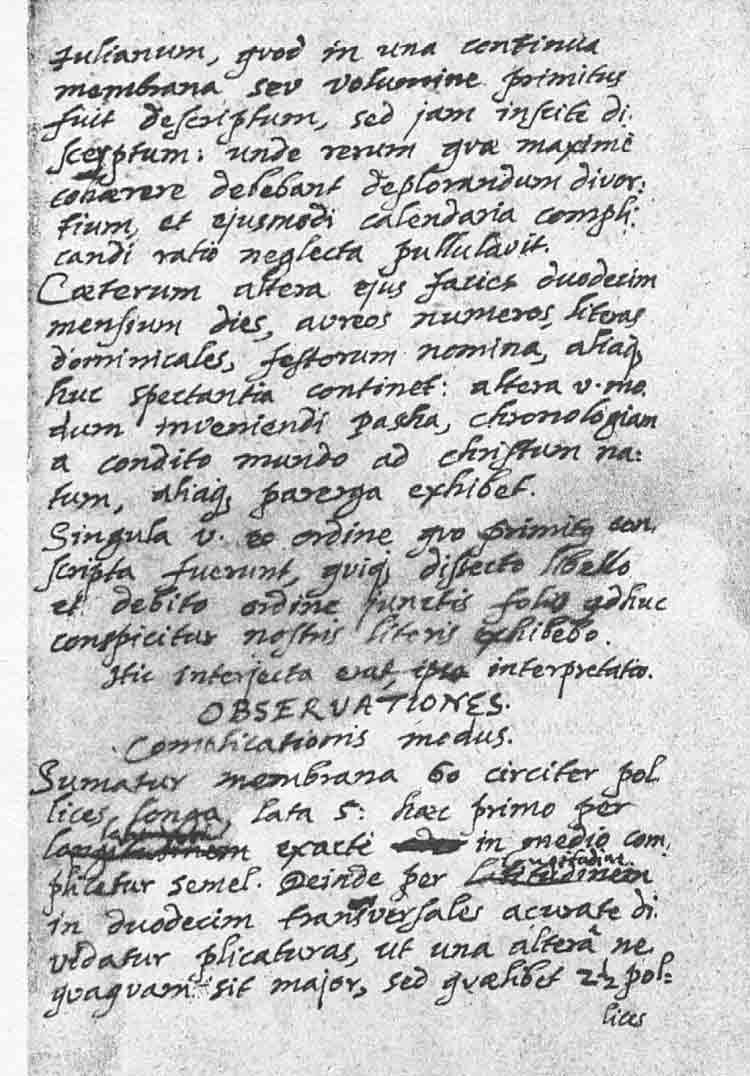 Julianum, quod in una continua
membrana seu volumine primitus
fuit descriptum, sed jam inscitè di,
scerptum: unde rerum quæ maximè
cohærere debebant deplorandum divor:
tium, et ejusmodi calendaria compli:
candi ratio neglecta pullulavit.
Cæterum altera ejus facies duodecim
mensium dies, aureos numeros, literas
dominicales, festorum nomina, aliaq,
huc spectantia continet: altera v. mo.
dum inveniendi Pasha, chronologiam
a condito mundo ad christum na:
tum, aliaq, parerga exhibet.
Singula v. eo ordine quo primitq con,
scripta fuerunt, quiq, dissecto libello
et debito ordine junctis foliis adhuc
conspicitur nostris literis exhibebo.
Hic interjecta erat interpretatio.
OBSERVATIONES.
Complicationis modus.
Sumatur membrana 60 circiter pol
lices longa, lata 5: hæc primo per
latitudinem
longitudinem exactè in medio com,
longitudinē
plicetur semel. Deinde per latitudinem
in duodecim transversales acurate di.
vidatur plicaturas, ut una alterâ ne.
quaquam sit major, sed quælibet 2½ pol=
lices